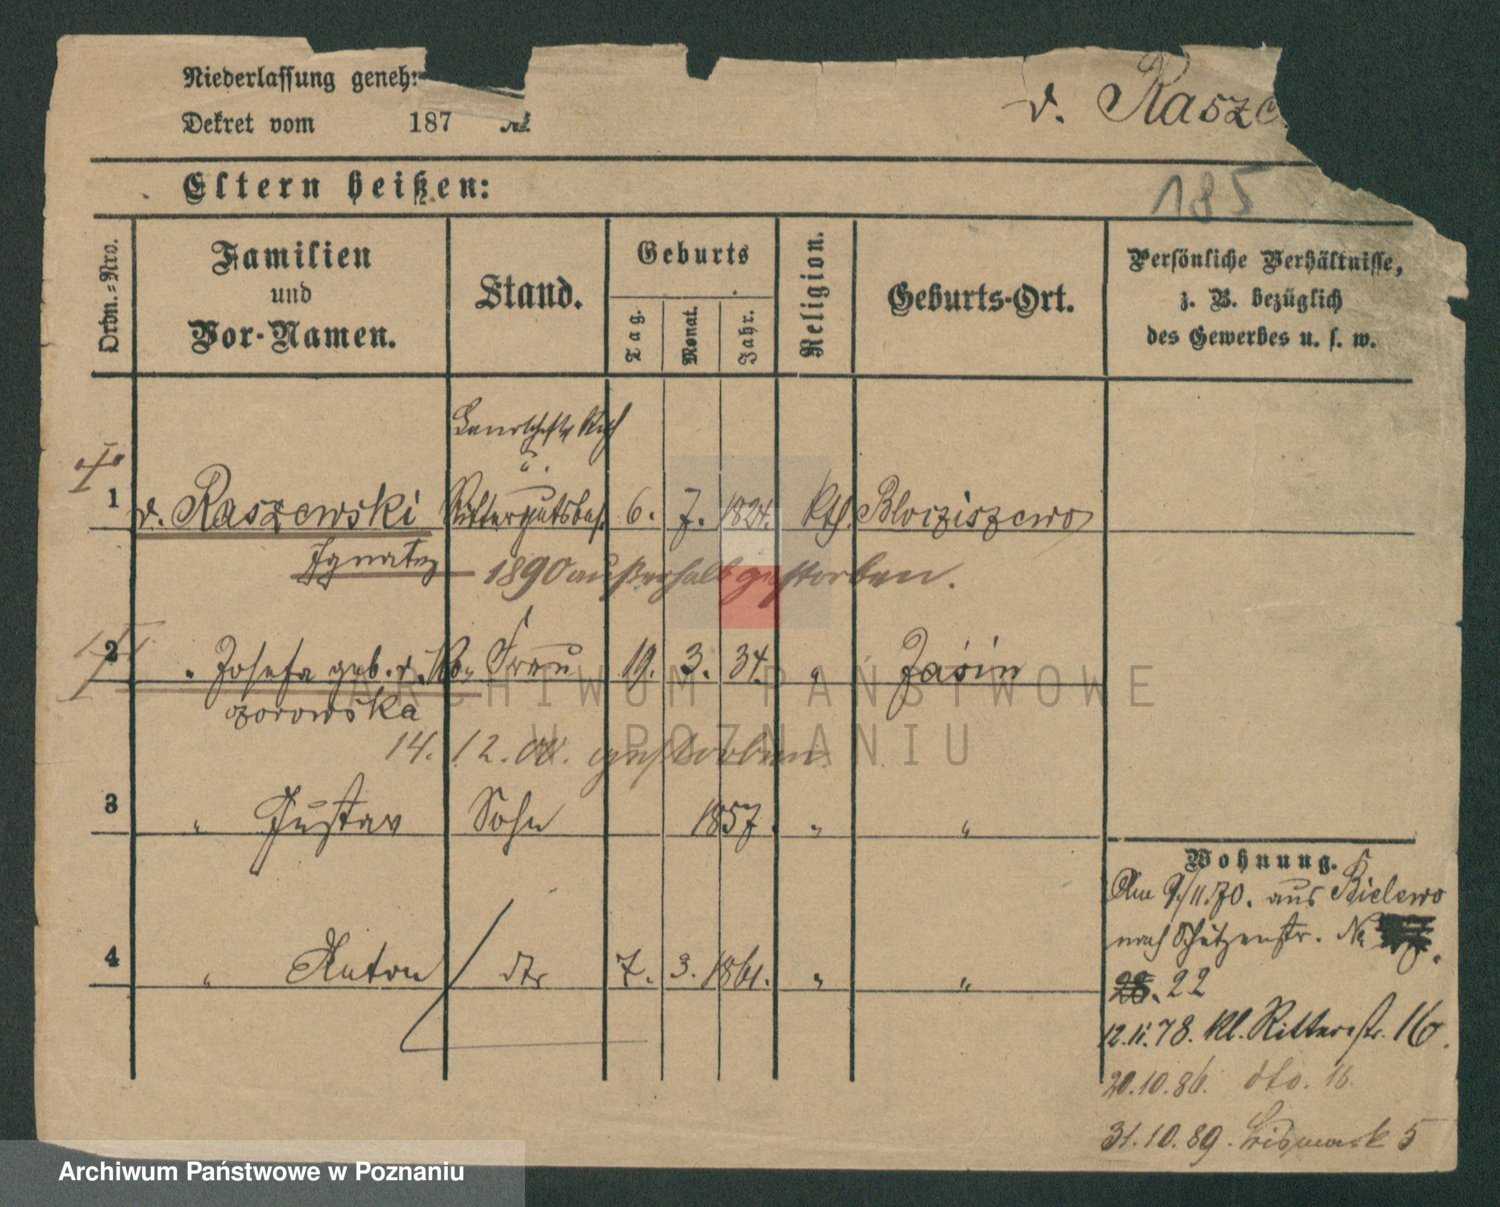 Niederlassung geneh:
Dekret vom 187 №
v. Rasze
Eltern heißen:
185
Ordn.-Nro.
Familien
und
Vor-Namen.
Stand.
Geburts
Tag.
Monat.
Jahr.
Religion.
Geburts-Ort.
Persönliche Verhältnisse,
z. B. bezüglich
des Gewerbes u. s. w.
Landschafts Rath
u.
1 v. Raszewski Rittergutsbes. 6. 7. 1824. kth. Blociszewo
Ignatz 1890 außerhalb gestorben.
2 " Josefa geb. v. Ko- Frau 19. 3. 34. " Jasin
zorowska
14. 12. 00. gestorben.
3 " Gustav Sohn 1857. " "
4 " Anton / dto 7. 3. 1861. " "
Wohnung.
Am 9/11.70. aus Bielewo
nach Schützenstr. No
28. 22
12.11.78. Kl. Ritterstr. 16.
20.10.86. dto. 16.
31.10.89. Bismarck 5
ARCHIWUM PAŃSTWOWE
W POZNANIU
Archiwum Państwowe w Poznaniu